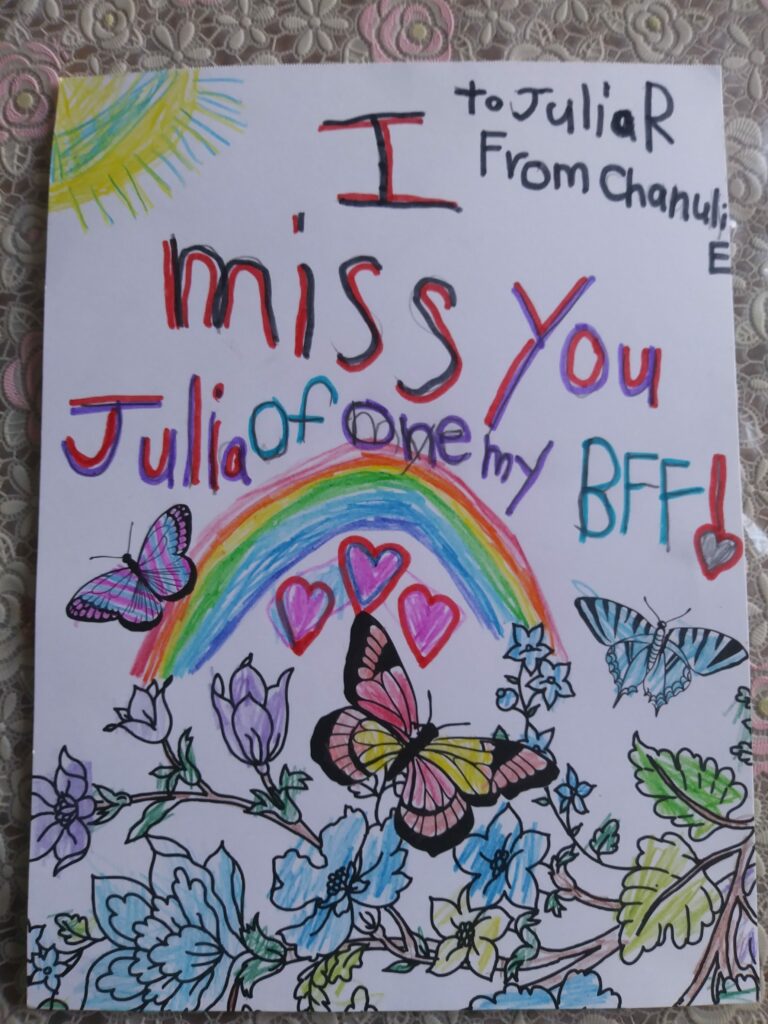 to Julia R
From Chanuli
E
I
miss You
Julia of one my BFF!